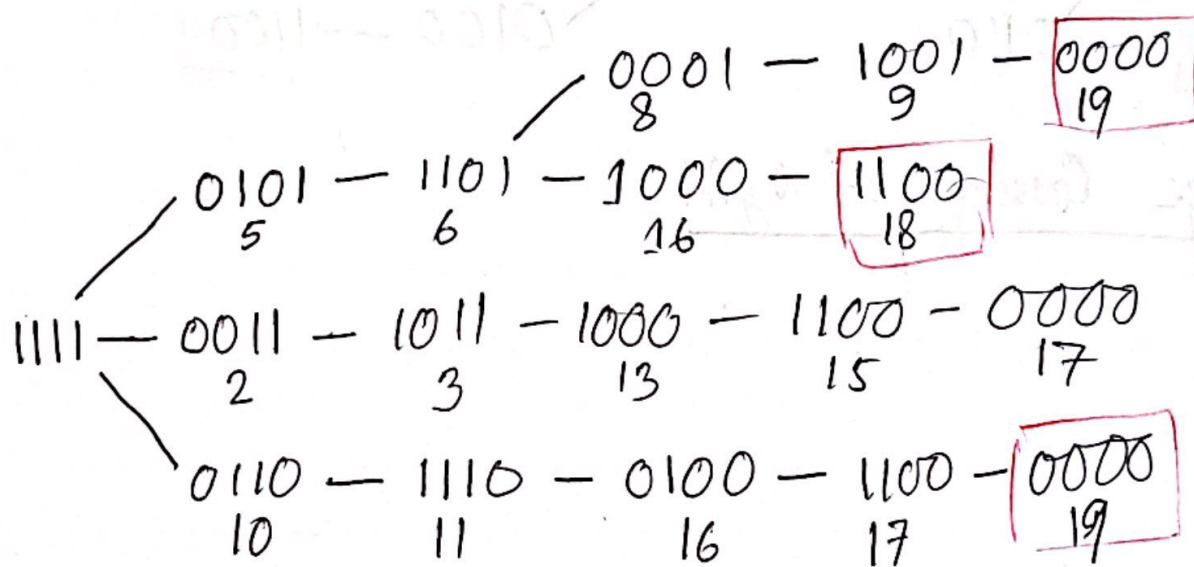 0001 — 1001 — 0000
8 9 19
0101 — 1101 — 1000 — 1100
5 6 16 18
1111 — 0011 — 1011 — 1000 — 1100 — 0000
2 3 13 15 17
0110 — 1110 — 0100 — 1100 — 0000
10 11 16 17 19